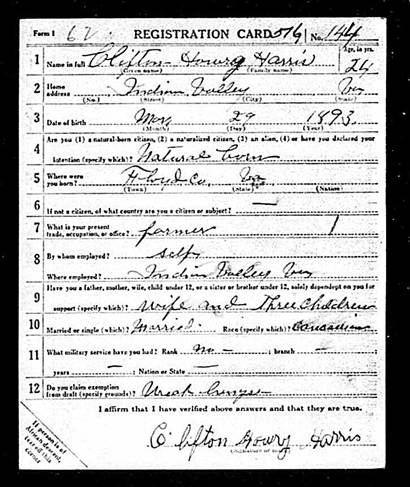 Form 1 62 REGISTRATION CARD 516 No. 144
1 Name in full Clifton Howry Harris Age, in yrs. 24
(Given name) (Family name)
2 Home address Indian Valley Va
(No.) (Street) (City) (State)
3 Date of birth May 29 1893
(Month) (Day) (Year)
4 Are you (1) a natural-born citizen, (2) a naturalized citizen, (3) an alien, (4) or have you declared your
intention (specify which)? Natural born
5 Where were you born? Floyd Co, Va
(Town) (State) (Nation)
6 If not a citizen, of what country are you a citizen or subject? —
7 What is your present trade, occupation, or office? farmer 1
8 By whom employed? self
Where employed? Indian Valley Va
9 Have you a father, mother, wife, child under 12, or a sister or brother under 12, solely dependent on you for
support (specify which)? Wife and Three Children
10 Married or single (which)? Married. Race (specify which)? Caucasian
11 What military service have you had? Rank No — ; branch
years — ; Nation or State —
12 Do you claim exemption from draft (specify grounds)? Weak lungs
I affirm that I have verified above answers and that they are true.
Clifton Howry Harris
If person is of African descent, tear off this corner